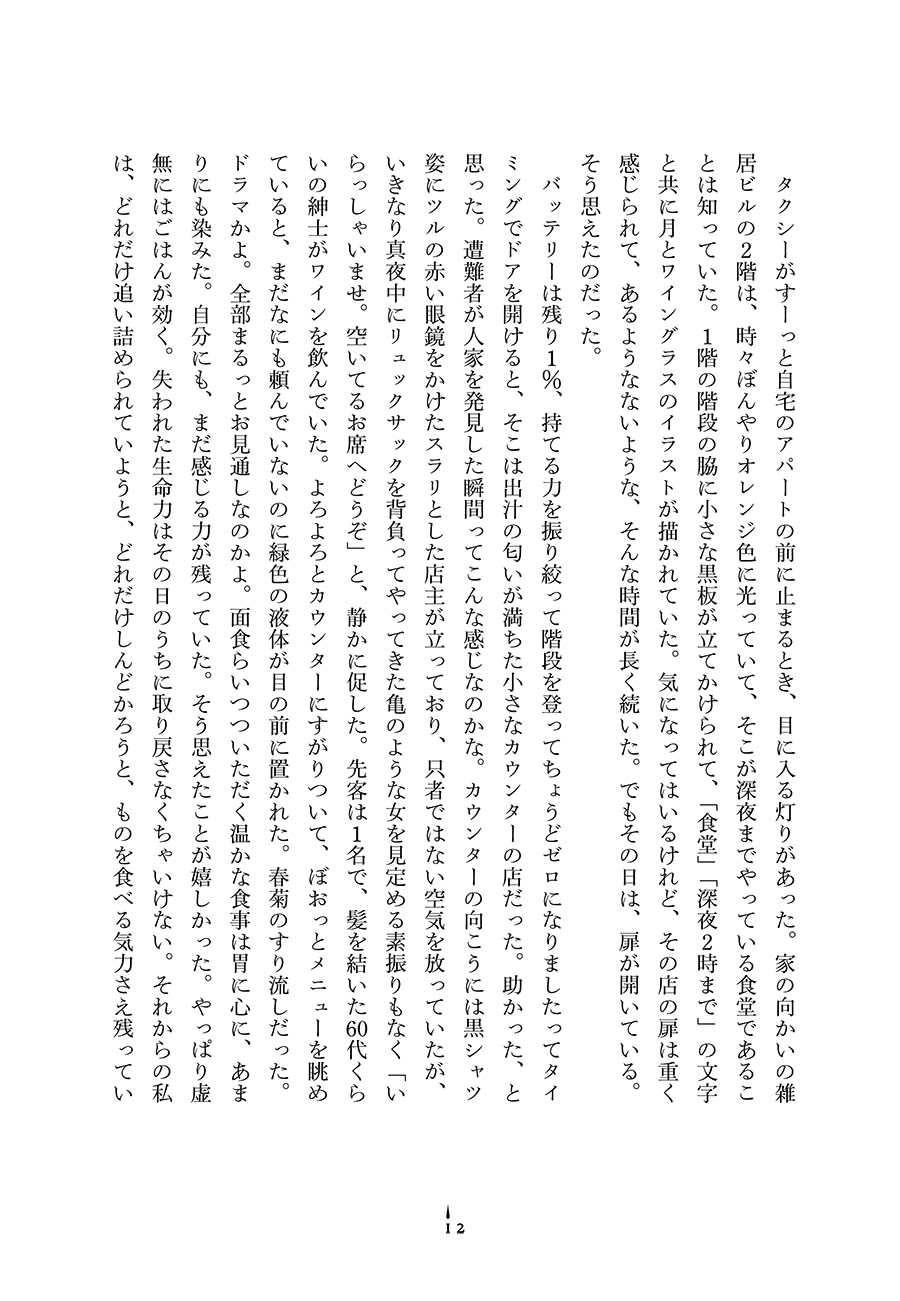 タクシーがすーっと自宅のアパートの前に止まるとき、目に入る灯りがあった。家の向かいの雑
居ビルの2階は、時々ぼんやりオレンジ色に光っていて、そこが深夜までやっている食堂であるこ
とは知っていた。1階の階段の脇に小さな黒板が立てかけられて、「食堂」「深夜2時まで」の文字
と共に月とワイングラスのイラストが描かれていた。気になってはいるけれど、その店の扉は重く
感じられて、あるようなないような、そんな時間が長く続いた。でもその日は、扉が開いている。
そう思えたのだった。
　バッテリーは残り1％、持てる力を振り絞って階段を登ってちょうどゼロになりましたってタイ
ミングでドアを開けると、そこは出汁の匂いが満ちた小さなカウンターの店だった。助かった、と
思った。遭難者が人家を発見した瞬間ってこんな感じなのかな。カウンターの向こうには黒シャツ
姿にツルの赤い眼鏡をかけたスラリとした店主が立っており、只者ではない空気を放っていたが、
いきなり真夜中にリュックサックを背負ってやってきた亀のような女を見定める素振りもなく「い
らっしゃいませ。空いてるお席へどうぞ」と、静かに促した。先客は1名で、髪を結いた60代くら
いの紳士がワインを飲んでいた。よろよろとカウンターにすがりついて、ぼおっとメニューを眺め
ていると、まだなにも頼んでいないのに緑色の液体が目の前に置かれた。春菊のすり流しだった。
ドラマかよ。全部まるっとお見通しなのかよ。面食らいつついただく温かな食事は胃に心に、あま
りにも染みた。自分にも、まだ感じる力が残っていた。そう思えたことが嬉しかった。やっぱり虚
無にはごはんが効く。失われた生命力はその日のうちに取り戻さなくちゃいけない。それからの私
は、どれだけ追い詰められていようと、どれだけしんどかろうと、ものを食べる気力さえ残ってい
12